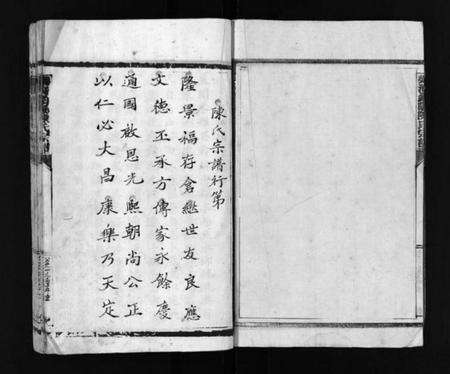 陳氏宗譜行第
隆景福存倉繼世友良應
文德丕承方傳家永餘慶
道國啟思光熙朝尚公正
以仁必大昌康樂乃天定